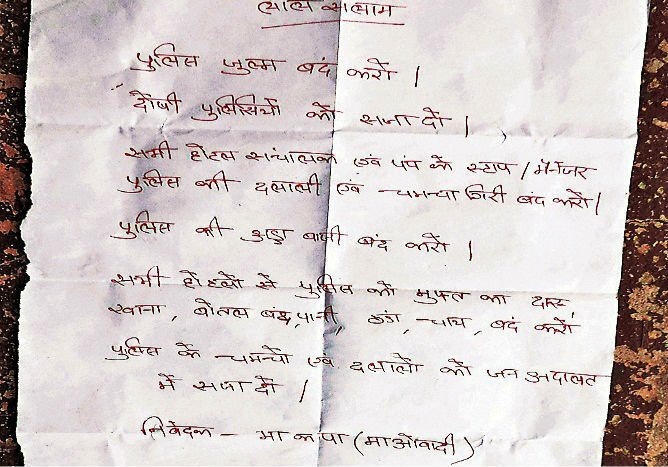 लाल सलाम
पुलिस जुल्म बंद करो |
दोषी पुलिसियों को सजा दो |
सभी होटल संचालक एवं पंप के स्टाप / मैनेजर
पुलिस की दलाली एवं चमचा गिरी बंद करो |
पुलिस की अड्डा बाजी बंद करो |
सभी होटलों से पुलिस को मुफ्त का दारू,
खाना, बोतल बंद, पानी, अंडा, चाय, बंद करो
पुलिस के चमचों एवं दलालों को जन अदालत
में सजा दो |
निवेदक - भा क पा (माओवादी)